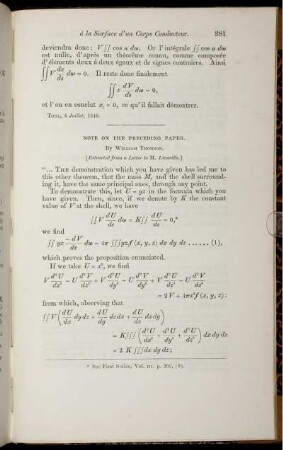 à la Surface d'un Corps Conducteur. 281
deviendra donc: V∬ cos α dω. Or l'intégrale ∬ cos α dω
est nulle, d'après un théorème connu, comme composée
d'éléments deux à deux égaux et de signes contraires. Ainsi
∬ V dx/dz dω = 0. Il reste donc finalement
∬ x dV/dz dω = 0,
et l'on en conclut x₁ = 0, ce qu'il fallait démontrer.
Toul, 4 Juillet, 1846.
NOTE ON THE PRECEDING PAPER.
By William Thomson.
[Extracted from a Letter to M. Liouville.]
"... The demonstration which you have given has led me to
this other theorem, that the mass M, and the shell surround-
ing it, have the same principal axes, through any point.
To demonstrate this, let U = yz in the formula which you
have given. Then, since, if we denote by K the constant
value of V at the shell, we have
∬ V dU/dz dω = K∬ dU/dz dω = 0,*
we find
∬ yz -dV/dz dω = 4π ∭ yz f (x, y, z) dx dy dz ...... (1),
which proves the proposition enunciated.
If we take U = x², we find
V d²U/dx² - U d²V/dx² + V d²U/dy² - U d²V/dy² + V d²U/dz² - U d²V/dz²
= 2 V + 4πx² f (x, y, z):
from which, observing that
∬ V (dU/dx dy dz + dU/dy dz dx + dU/dz dx dy)
= K∭ (d²U/dx² + d²U/dy² + d²U/dz²) dx dy dz
= 2 K ∭ dx dy dz;
* See First Series, Vol. III. p. 202,